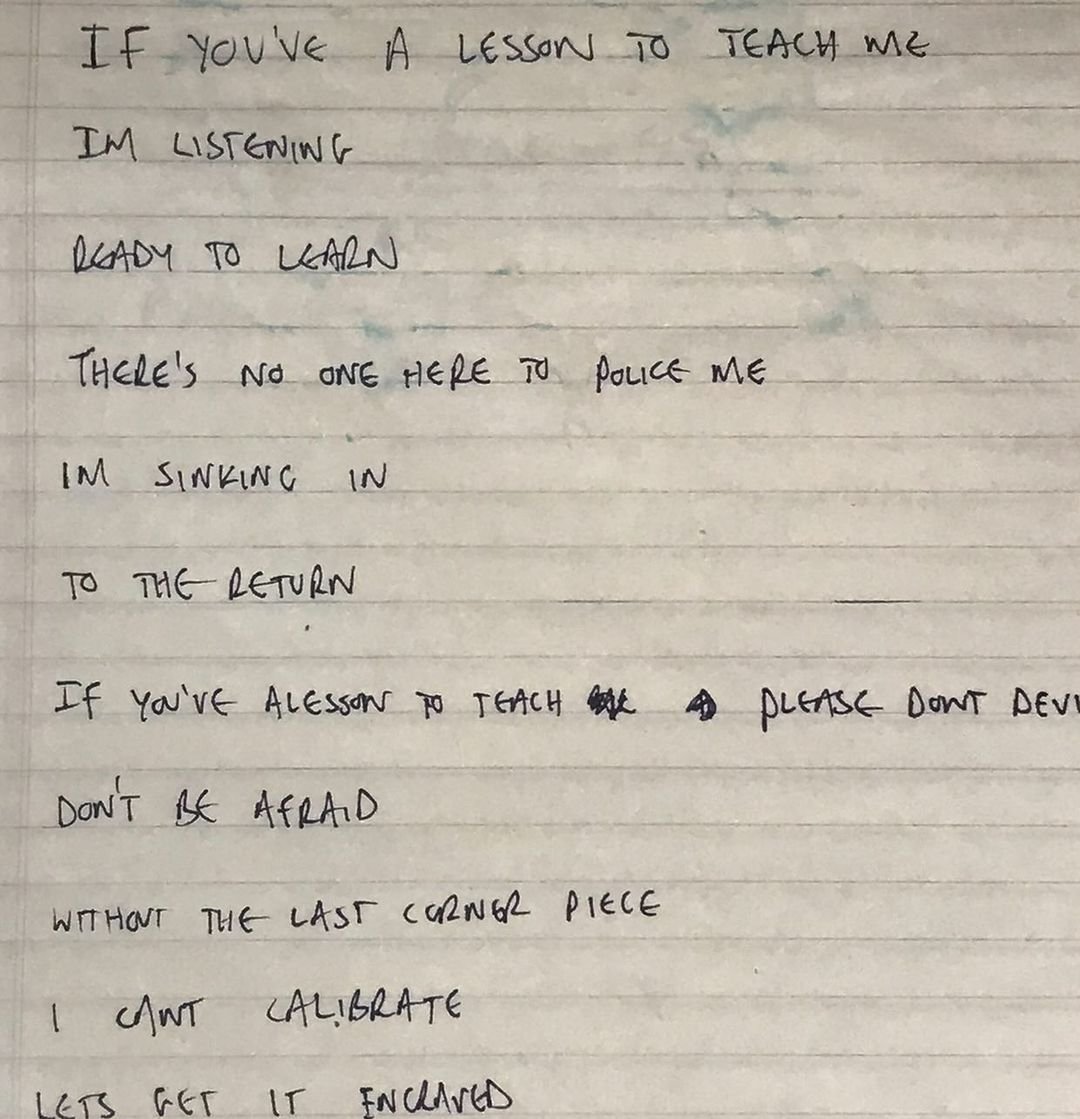 IF YOU'VE A LESSON TO TEACH ME
IM LISTENING
READY TO LEARN
THERE'S NO ONE HERE TO POLICE ME
IM SINKING IN
TO THE RETURN
IF YOU'VE A LESSON TO TEACH PLEASE DONT DEVI
DON'T BE AFRAID
WITHOUT THE LAST CORNER PIECE
I CANT CALIBRATE
LETS GET IT ENGRAVED